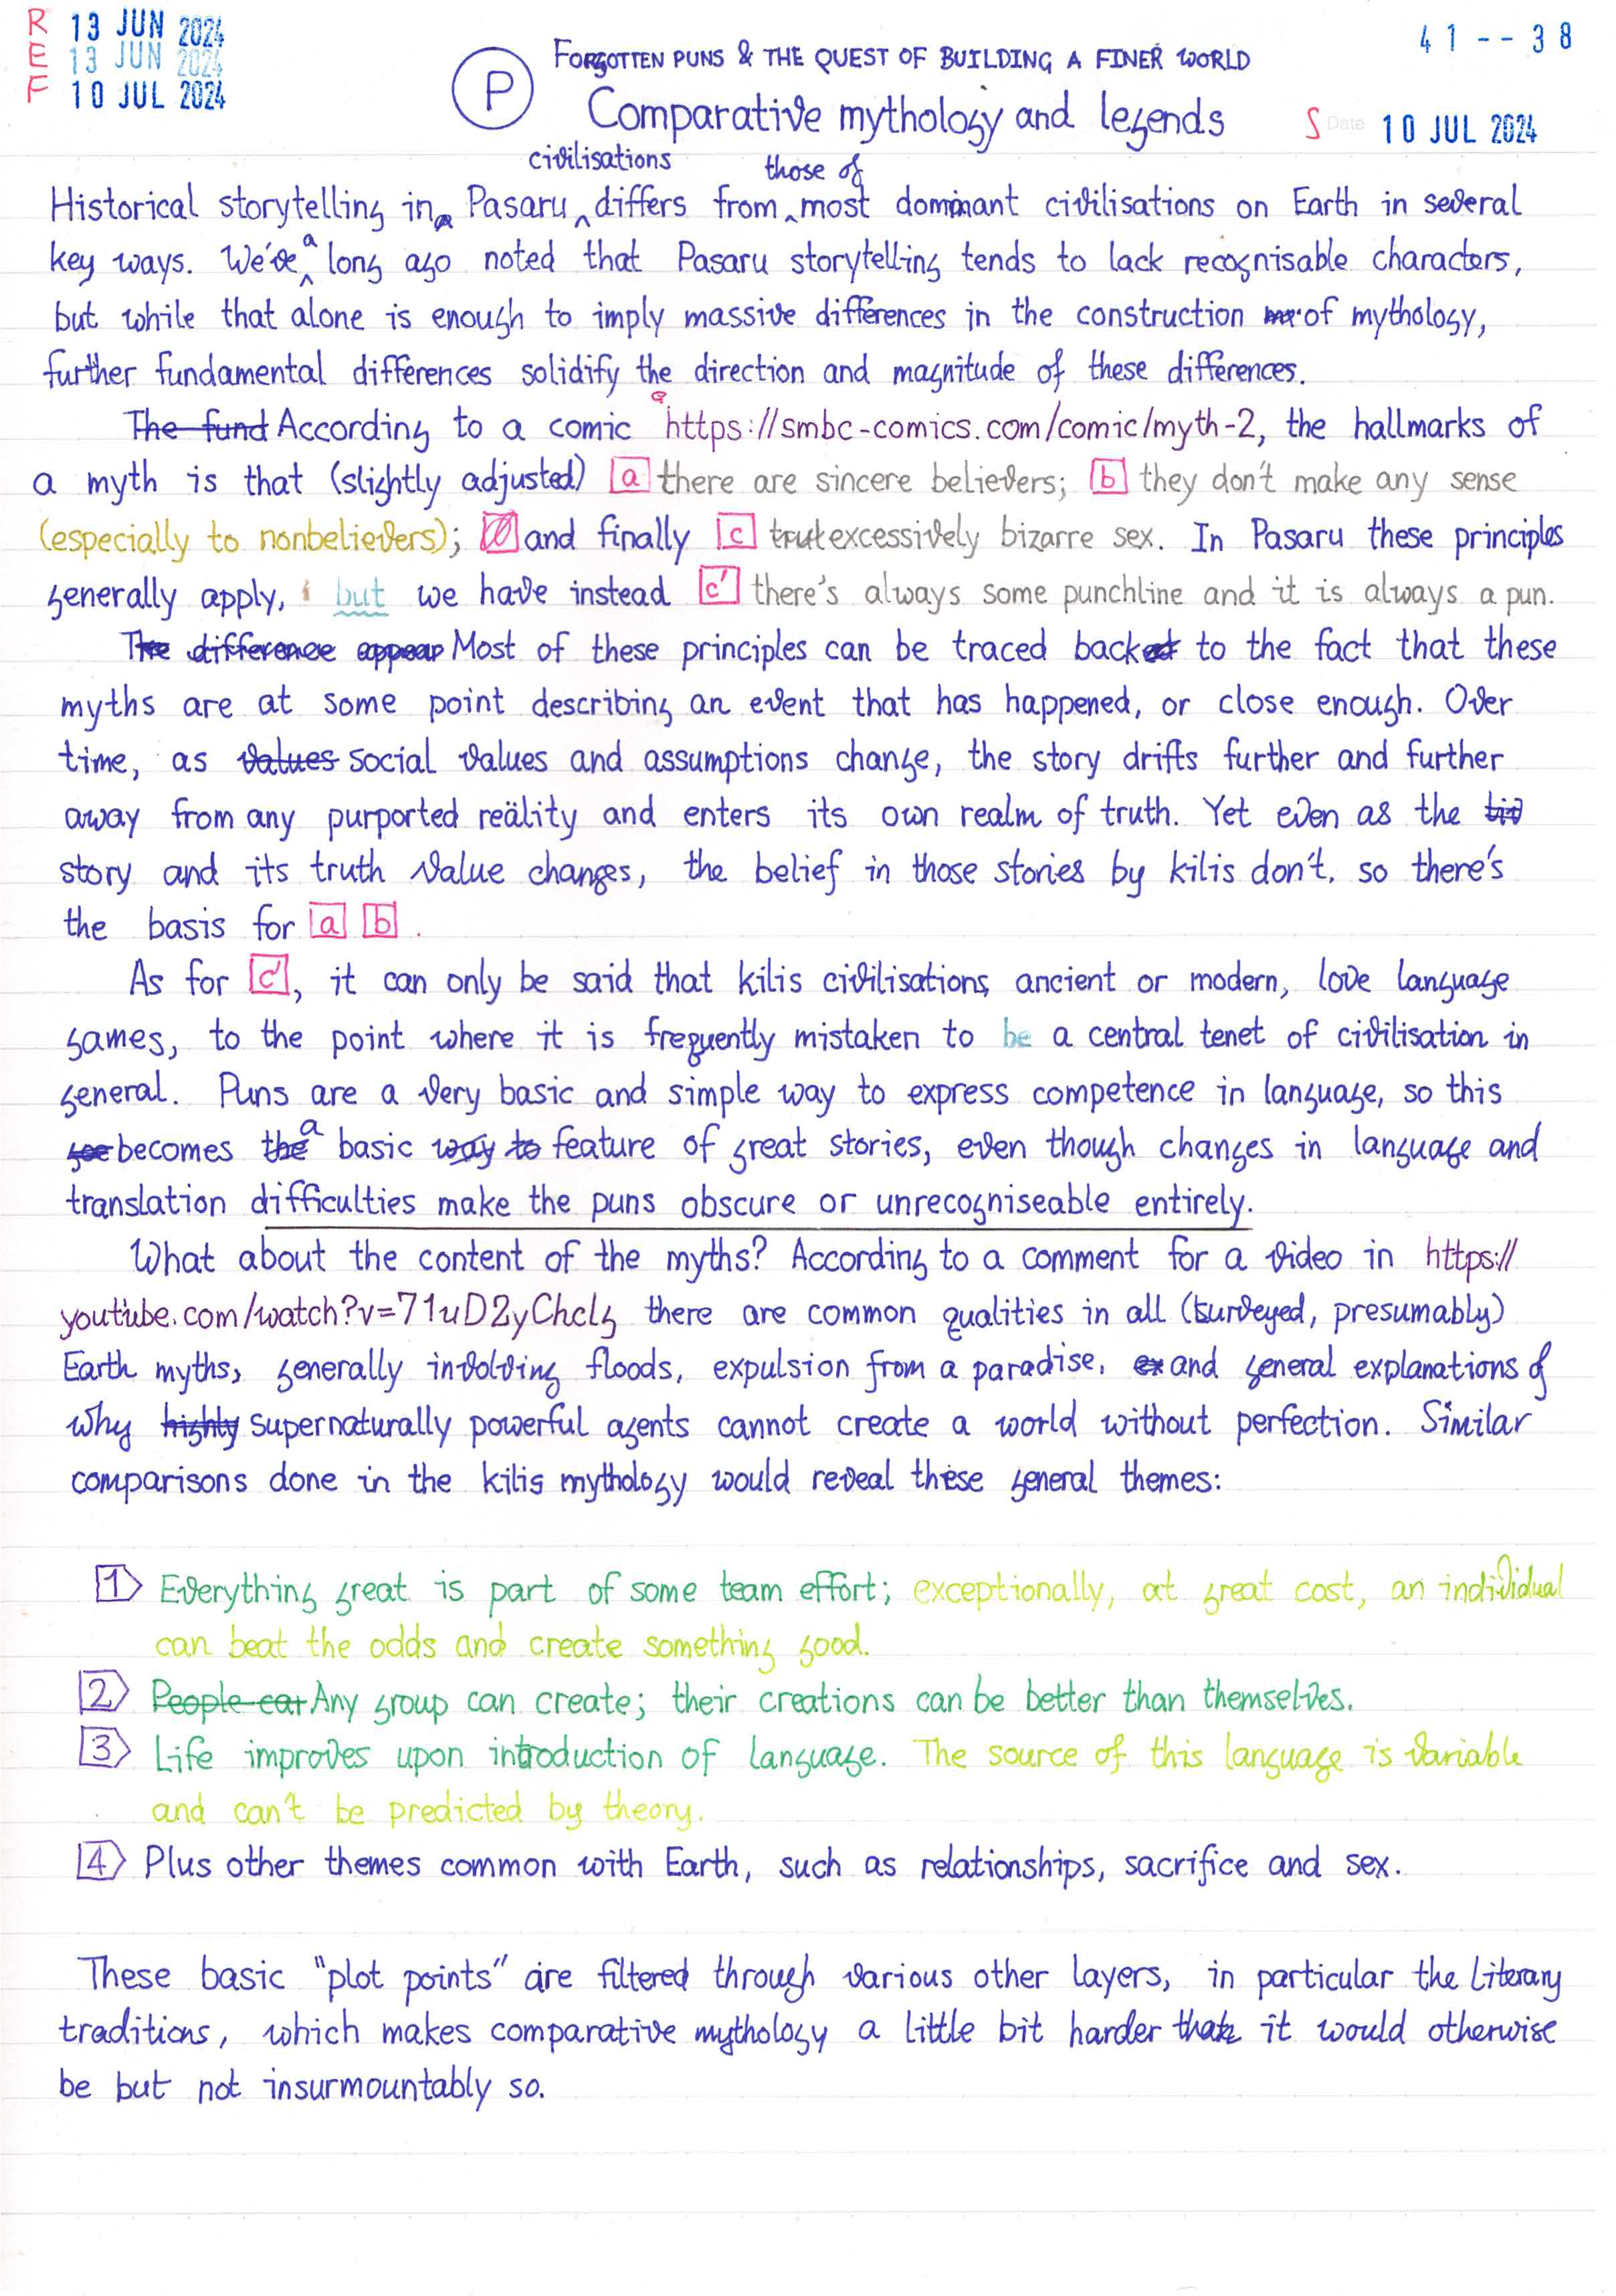 R 13 JUN 2024
E 13 JUN 2024
F 10 JUL 2024
41--38
P
FORGOTTEN PUNS & THE QUEST OF BUILDING A FINER WORLD
Comparative mythology and legends
S Date 10 JUL 2024
civilisations those of
Historical storytelling in Pasaru differs from most dominant civilisations on Earth in several
key ways. We've a long ago noted that Pasaru storytelling tends to lack recognisable characters,
but while that alone is enough to imply massive differences in the construction of mythology,
further fundamental differences solidify the direction and magnitude of these differences.
The fund According to a comic @ https://smbc-comics.com/comic/myth-2, the hallmarks of
a myth is that (slightly adjusted) a there are sincere believers; b they don't make any sense
(especially to nonbelievers); and finally c trut excessively bizarre sex. In Pasaru these principles
generally apply, but we have instead c' there's always some punchline and it is always a pun.
The difference appear Most of these principles can be traced back to the fact that these
myths are at some point describing an event that has happened, or close enough. Over
time, as values social values and assumptions change, the story drifts further and further
away from any purported reälity and enters its own realm of truth. Yet even as the
story and its truth value changes, the belief in those stories by kilis don't, so there's
the basis for a b.
As for c', it can only be said that kilis civilisations, ancient or modern, love language
games, to the point where it is frequently mistaken to be a central tenet of civilisation in
general. Puns are a very basic and simple way to express competence in language, so this
becomes the a basic way to feature of great stories, even though changes in language and
translation difficulties make the puns obscure or unrecogniseable entirely.
What about the content of the myths? According to a comment for a video in https://
youtube.com/watch?v=71uD2yChclg there are common qualities in all (surveyed, presumably)
Earth myths, generally involving floods, expulsion from a paradise, ex and general explanations of
why highly supernaturally powerful agents cannot create a world without perfection. Similar
comparisons done in the kilis mythology would reveal these general themes:
1 Everything great is part of some team effort; exceptionally, at great cost, an individual
can beat the odds and create something good.
2 People car Any group can create; their creations can be better than themselves.
3 Life improves upon introduction of language. The source of this language is variable
and can't be predicted by theory.
4 Plus other themes common with Earth, such as relationships, sacrifice and sex.
These basic "plot points" are filtered through various other layers, in particular the literary
traditions, which makes comparative mythology a little bit harder than it would otherwise
be but not insurmountably so.